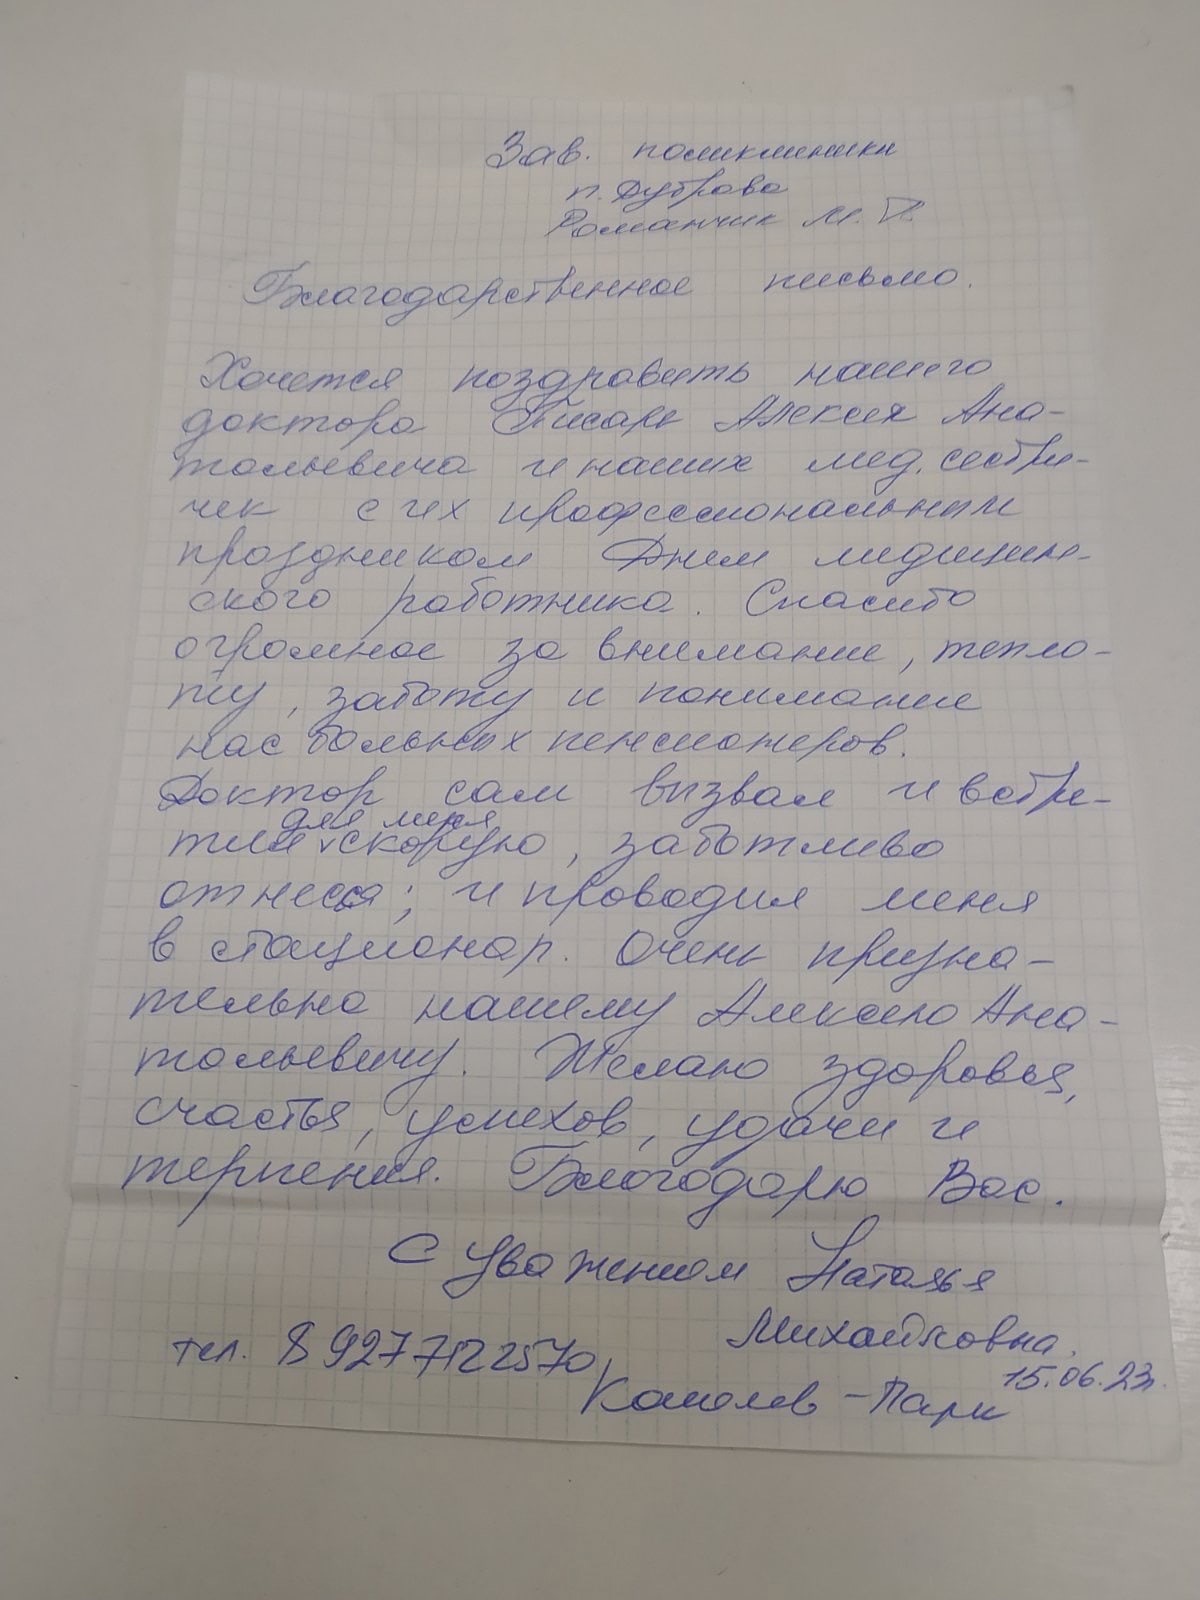 Зав. поликлиники
п. Дуброва
Романчик М. П.
Благодарственное письмо.
Хочется поздравить нашего
доктора Писарь Алексея Ана-
тольевича и наших мед. сестри-
чек с их профессиональным
праздником Днем медицин-
ского работника. Спасибо
огромное за внимание, тепло-
ту, заботу и понимание
нас больных пенсионеров.
Доктор сам вызвал и встре-
для меня
тил скорую, заботливо
отнесся; и проводил меня
в стационар. Очень призна-
тельна нашему Алексею Ана-
тольевичу. Желаю здоровья,
счастья, успехов, удачи и
терпения. Благодарю Вас.
С Уважением Наталья
Михайловна.
тел. 8 927 712 25 70
15.06.23г.
Кошелев-Парк